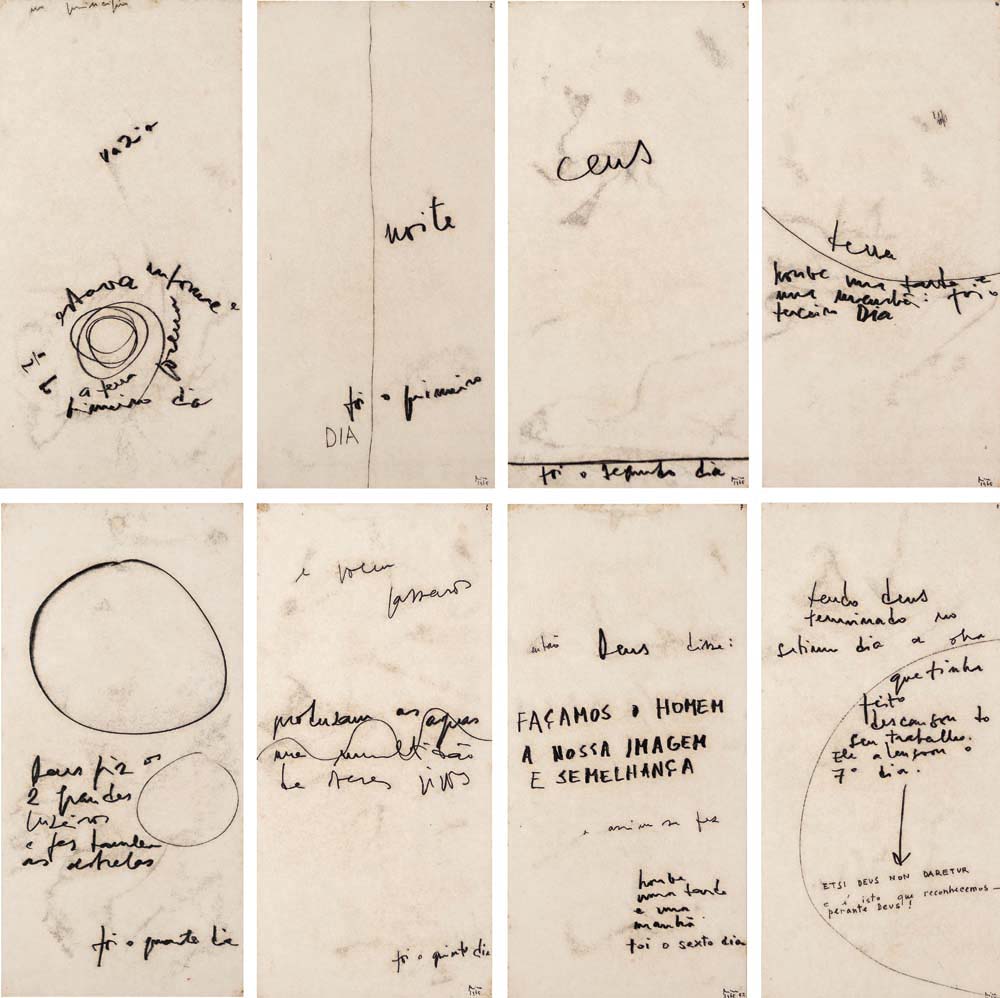 no principio
vazia
estava informe e
a terra
primeiro dia
2
noite
foi o primeiro
DIA
3
ceus
foi o segundo dia
4
terra
houve uma tarde e
uma manhã: foi o
terceiro DIA
Deus fiz os
2 grandes
luzeiros
e fez tambem
as estrelas
foi o quarto dia
e voem
passaros
produzam as aguas
uma multidão
de seres vivos
foi o quinto dia
então Deus disse:
FAÇAMOS O HOMEM
A NOSSA IMAGEM
E SEMELHANÇA
e assim se fez
houve
uma tarde
e uma
manhã
foi o sexto dia
tendo deus
terminado no
setimo dia a obra
que tinha
feito
descansou do
seu trabalho.
Ele abençoou o
7º dia.
ETSI DEUS NON DARETUR
e é isto que reconhecemos –
perante Deus!